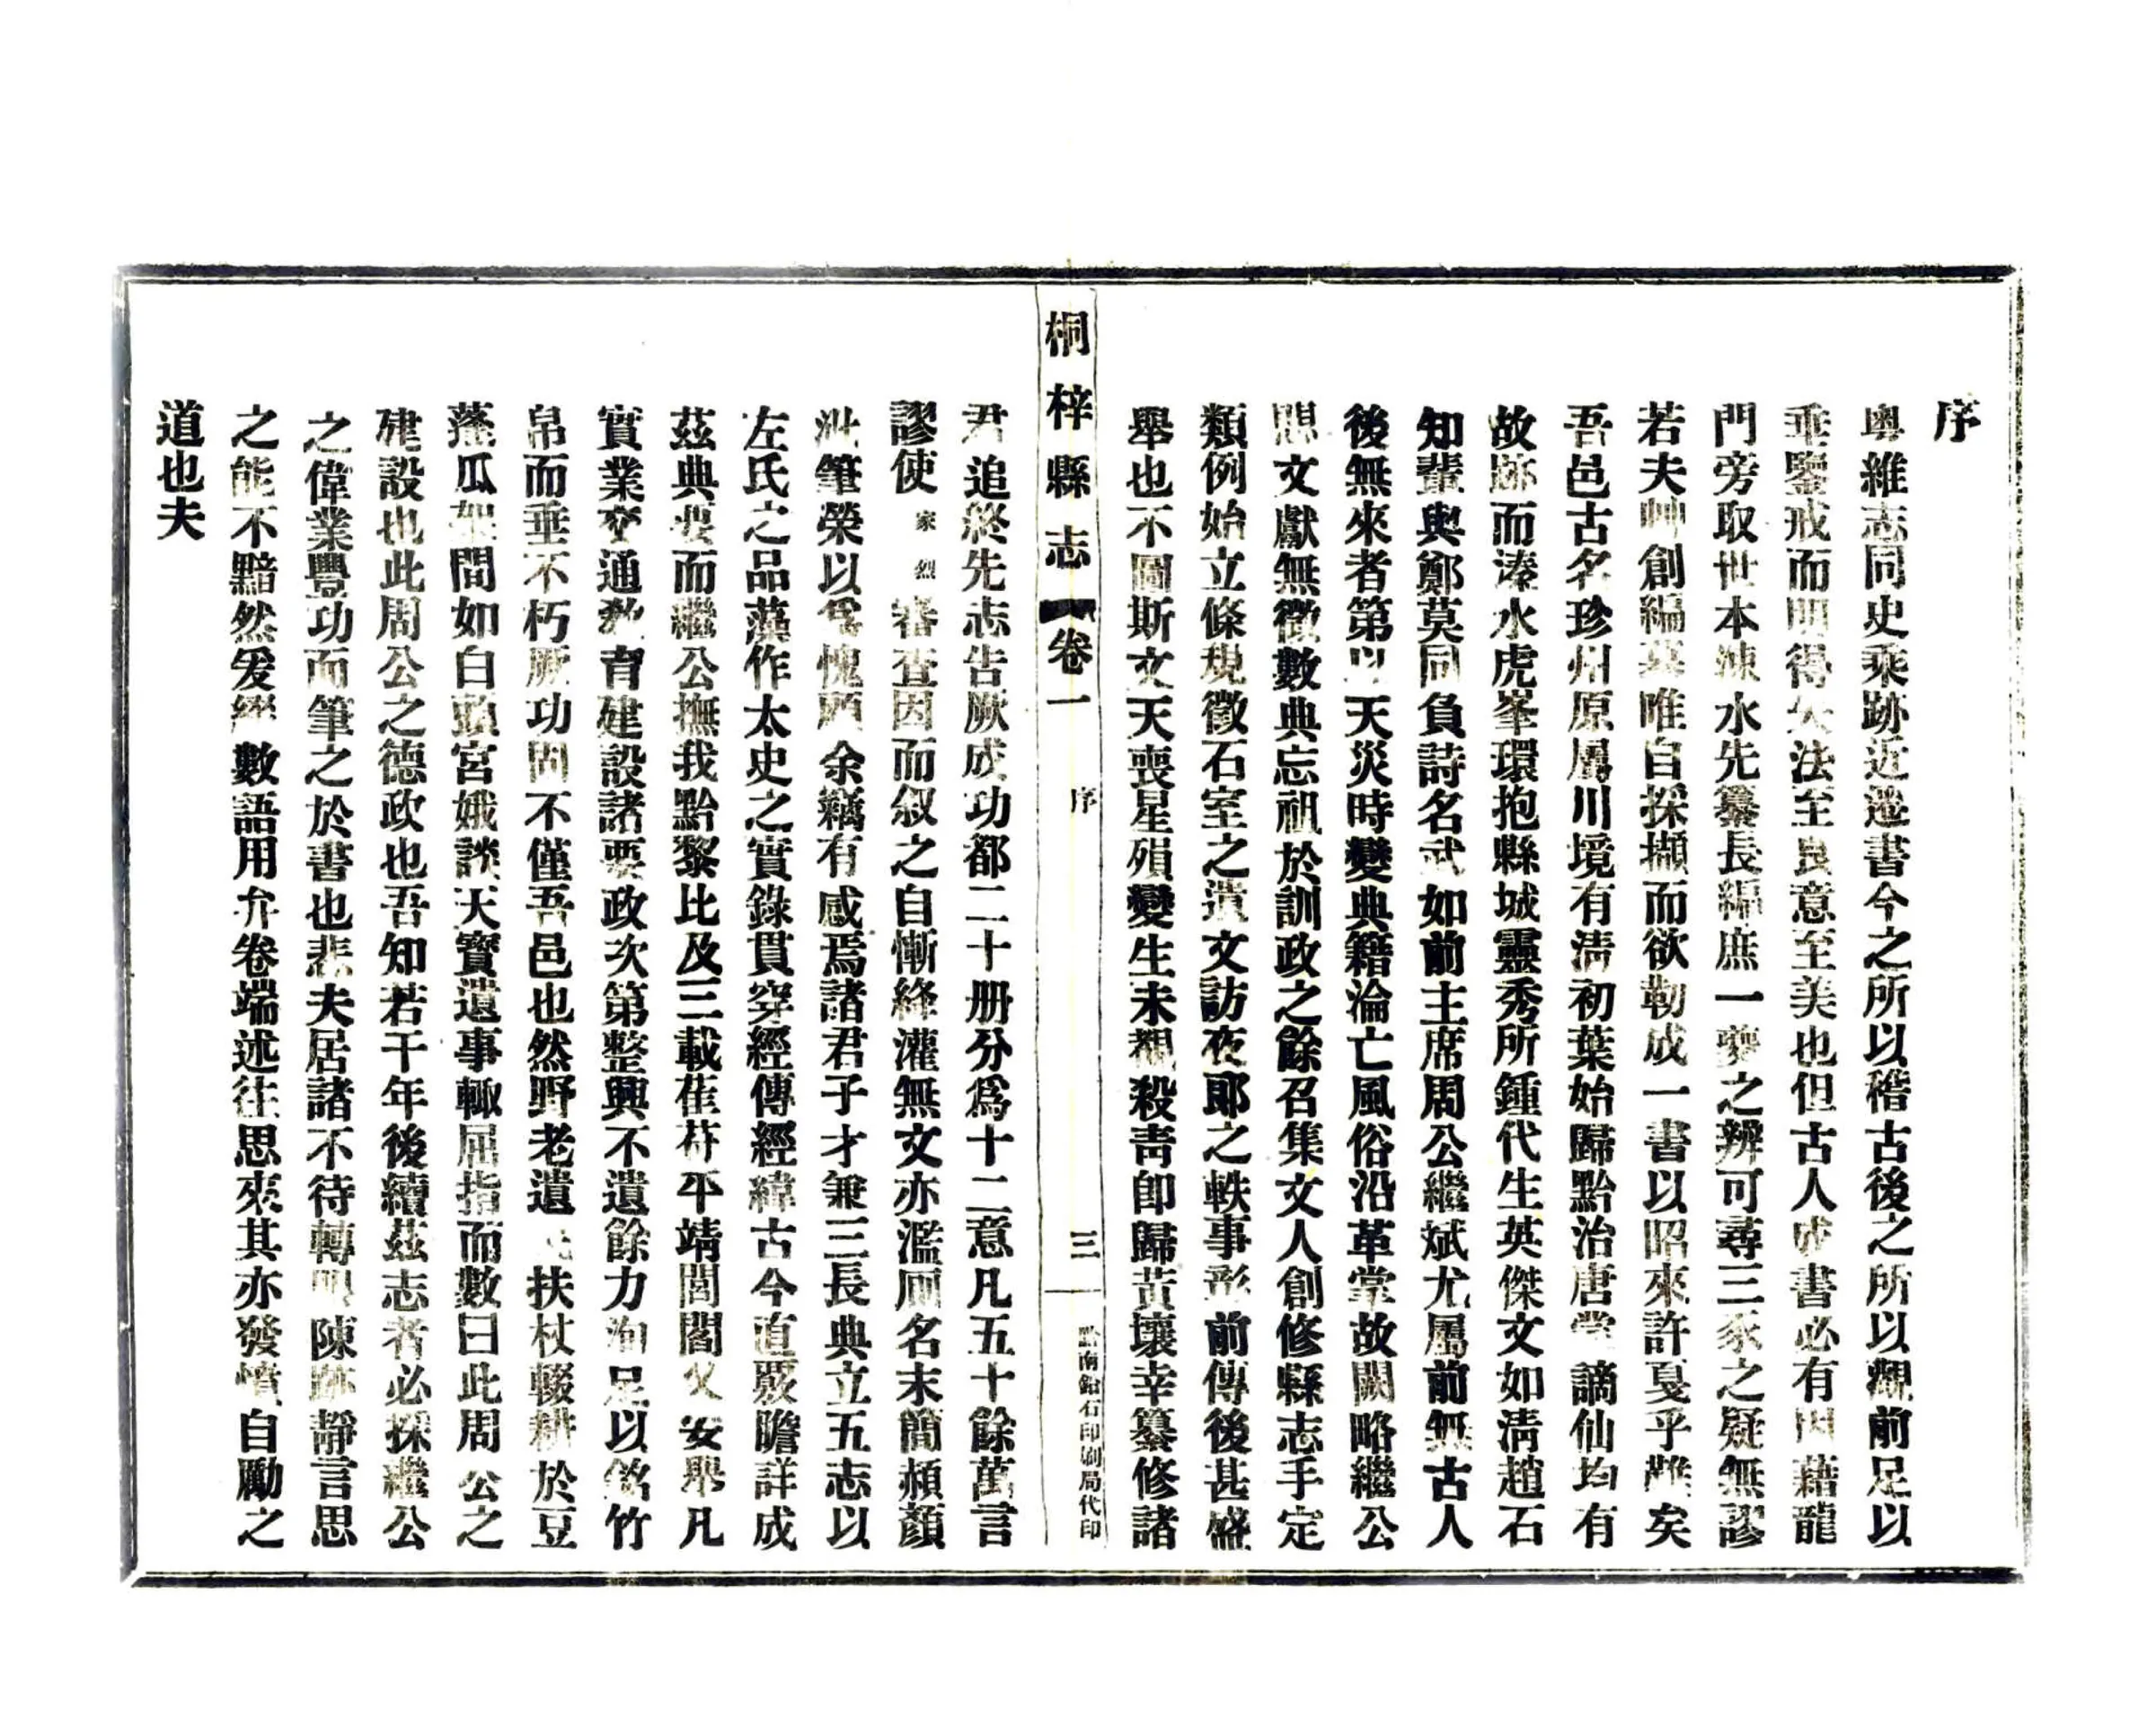 序
粵維志同史乘跡近邀書今之所以稽古後之所以溯前足以
垂鑒戒而明得失法至良意至美也但古人成書必有因藉龍
門旁取世本涑水先纂長編庶一夔之辨可尋三豕之疑無謬
若夫艸創編纂唯自採擷而欲勒成一書以昭來許戛乎難矣
吾邑古名珍州原屬川境有清初葉始歸黔治唐掌謫仙均有
故跡而溱水虎峯環抱縣城靈秀所鍾代生英傑文如清趙石
知輩與鄭莫同負詩名武如前主席周公繼斌尤屬前無古人
後無來者第以天災時變典籍淪亡風俗沿革掌故闕略繼公
思文獻無徵數典忘祖於訓政之餘召集文人創修縣志手定
類例始立條規徵石室之遺文訪夜郞之軼事彰前傳後甚盛
舉也不圖斯文天喪星殞變生未覩殺靑卽歸黃壤幸纂修諸
桐梓縣志 卷一 序 三 黔南鉛石印刷局代印
君追終先志告厥成功都二十册分爲十二意凡五十餘萬言
謬使家烈審查因而叙之自慚絳灌無文亦濫厠名末簡頳顏
泚筆榮以爲愧顧余竊有感焉諸君子才兼三長典立五志以
左氏之品藻作太史之實錄貫穿經傳經緯古今直覈瞻詳成
茲典要而繼公撫我黔黎比及三載萑苻平靖閭閻乂安舉凡
實業交通敎育建設諸要政次第整興不遺餘力洵足以銘竹
帛而垂不朽厥功固不僅吾邑也然野老遺 扶杖輟耕於豆
蓬瓜架間如白頭宮娥談天寶遺事輙屈指而數曰此周公之
建設也此周公之德政也吾知若干年後續茲志者必採繼公
之偉業豐功而筆之於書也悲夫居諸不待轉 陳跡靜言思
之能不黯然爰綴數語用弁卷端述往思來其亦發憤自勵之
道也夫